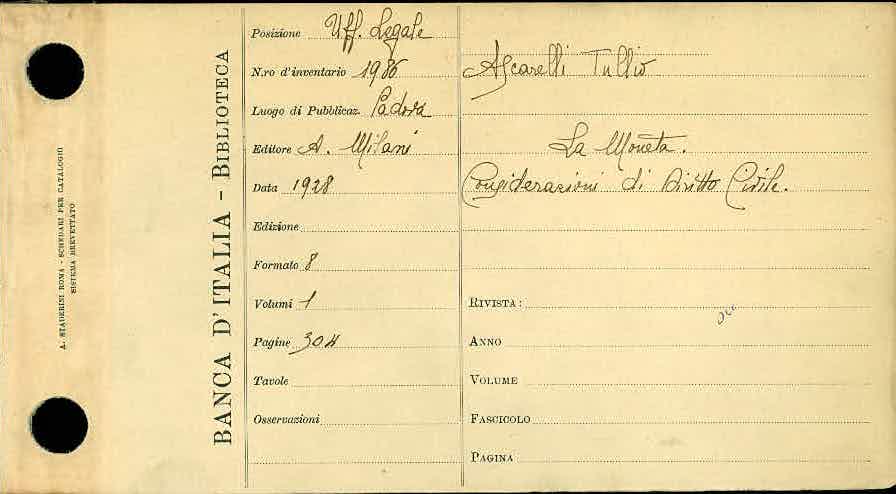 A. STADERINI ROMA - SCHEDARI PER CATALOGHI
SISTEMA BREVETTATO
BANCA D'ITALIA - BIBLIOTECA
Posizione Uff. Legale
N.ro d'inventario 1986
Luogo di Pubblicaz. Padova
Editore A. Milani
Data 1928
Edizione
Formato 8
Volumi 1
Pagine 304
Tavole
Osservazioni
Ascarelli Tullio
La Moneta.
Considerazioni di Diritto Civile.
RIVISTA:
ANNO
VOLUME
FASCICOLO
PAGINA